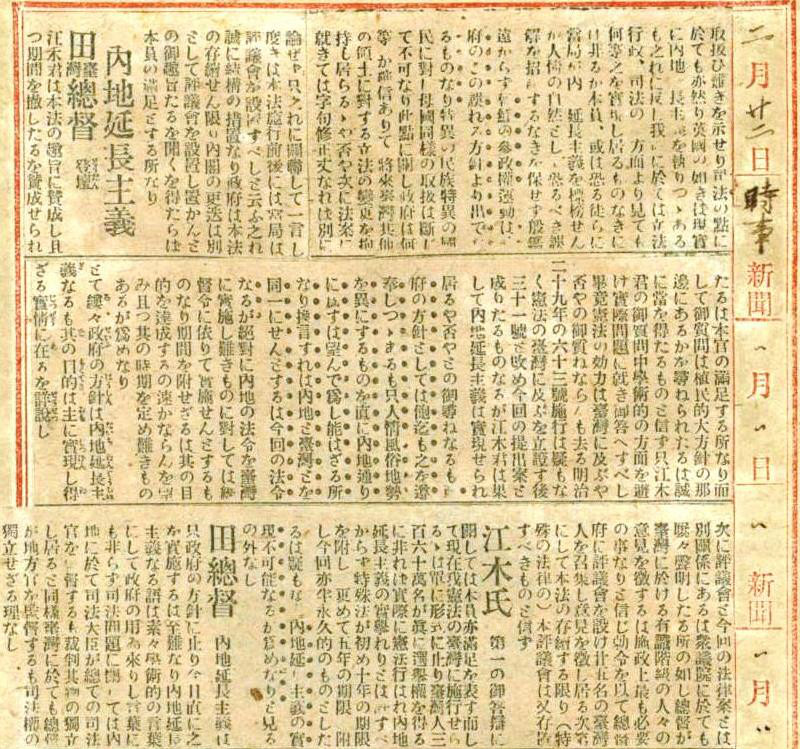 二月廿二日
時事新聞
月 日
新聞
月
取扱ひ難きを示せり司法の點に
於ても亦然り英國の如きは現實
に内地 長主 を執りつゝある
も之れに反し我 に於ては立法
行政、司法の 方面より見ても
何等之を實現し居るものなきに
非るか本員、或は恐る徒らに
當局が内 延長主義を標榜せん
か人情の自然とし 恐るべき誤
解を招 するなきを保せず殷鑑
遠からず 鮮の參政權運動は、
府のこの誤れる方針より出で
るものなり特異の民族特異の國
民に對し母國同樣の取扱は斷じ
て不可なり此點に關し政府は何
等か確信ありて 將來臺灣其他
の領土に對する立法の變更を
持し居らるゝや否や次に法案に
就きては字句修正丈なれば別に
論ぜず只之れに關聯して一言し
度きは本法施行前後には當局は
評議會が設置すべしと云ふ之れ
誠に結構の措置なり政府は本法
の存續せん限り内閣の更迭は別
として評議會を設置し置かんと
の御趣旨たるを聞くを得たらば
本員の滿足とする所なり
内地延長主義
田臺灣總督 登壇
江木君は本法の趣旨に賛成し且
つ期間を撤したるを賛成せられ
たるは本官の滿足する所なり而
して御質問は植民的大方針の那
邊にあるかを尋ねられたるは誠
に當を得たるものと信ず只江木
君の御質問中學術的の方面を避
け實際問題に就き御答へすべし
畢竟憲法の効力は臺灣に及ぶや
否やの御質ねなら も去る明治
二十九年の六十三號施行は疑もな
く憲法の臺灣に及ぶを立證す後
三十一號と改め今回の提出案と
成りたるものなるが江木君は果
して内地延長主義は實現せられ
居るや否やとの御尋ねなるも
府の方針としては他迄も之を遵
奉しつゝあるも只人情風俗地勢
を異にするものを直に内地通り
に す は望んで爲し能はざる所
なり換言すれば内地と臺灣とを
同一にせんとするは今回の法令
なるが絶對に内地の法令を臺灣
に實施し難きものに對しては總
督令に依りて實施せんとするも
のなり期間を附せざるは其の目
的を達成するの速かならんを望
み且つ其の時期を定め難きもの
あるが爲めなり
とて縷々政府の方針は内地延長主
義なるも其の目的は主に實現し得
ざる實情に在るを詳説し
次に評議會と今回の法律案とは
別關係にあるは衆議院に於ても
屡々聲明したる所の如し總督が
臺灣に於ける有識階級の人々の
意見を徴するは施政上最も必要
の事なりと信じ勅令を以て總督
府に評議會を設け廿五名の臺灣
人を召集し意見を徴し居る次第
にして本法の存續する限り（特
殊の法律の）本評議會は又存 
すべきものと信ず
江木氏 第一の御答辯に
關しては本員亦滿足を表す而し
て現在我憲法の臺灣に施行せら
るゝは單に形式に止り臺灣人三
百六十萬名が眞に選擧權を得る
に非れば實際に憲法行はれ内地
延長主義の實擧れりとは す
からず特殊法が初め十年の期限
を附し 更めて五年の期限 附
し今回亦半永久的のものとした
るは疑もな 内地延 主義の實
現不可能なるが爲めなりと見る
の外なし
田總督 内地延長主義は
只政府の方針に止り今日直に之
を實施するは至難なり内地延長
主義なる語は素々學術的の言葉
にして政府の用 來りし言葉に
も非らず司法問題に關しては内
地に於て司法大臣が總ての司法
官を 督するも裁判其物の獨立
し居ると同樣臺灣に於ても總督
が地方官を監督するも司法權の
獨立せざる理なし